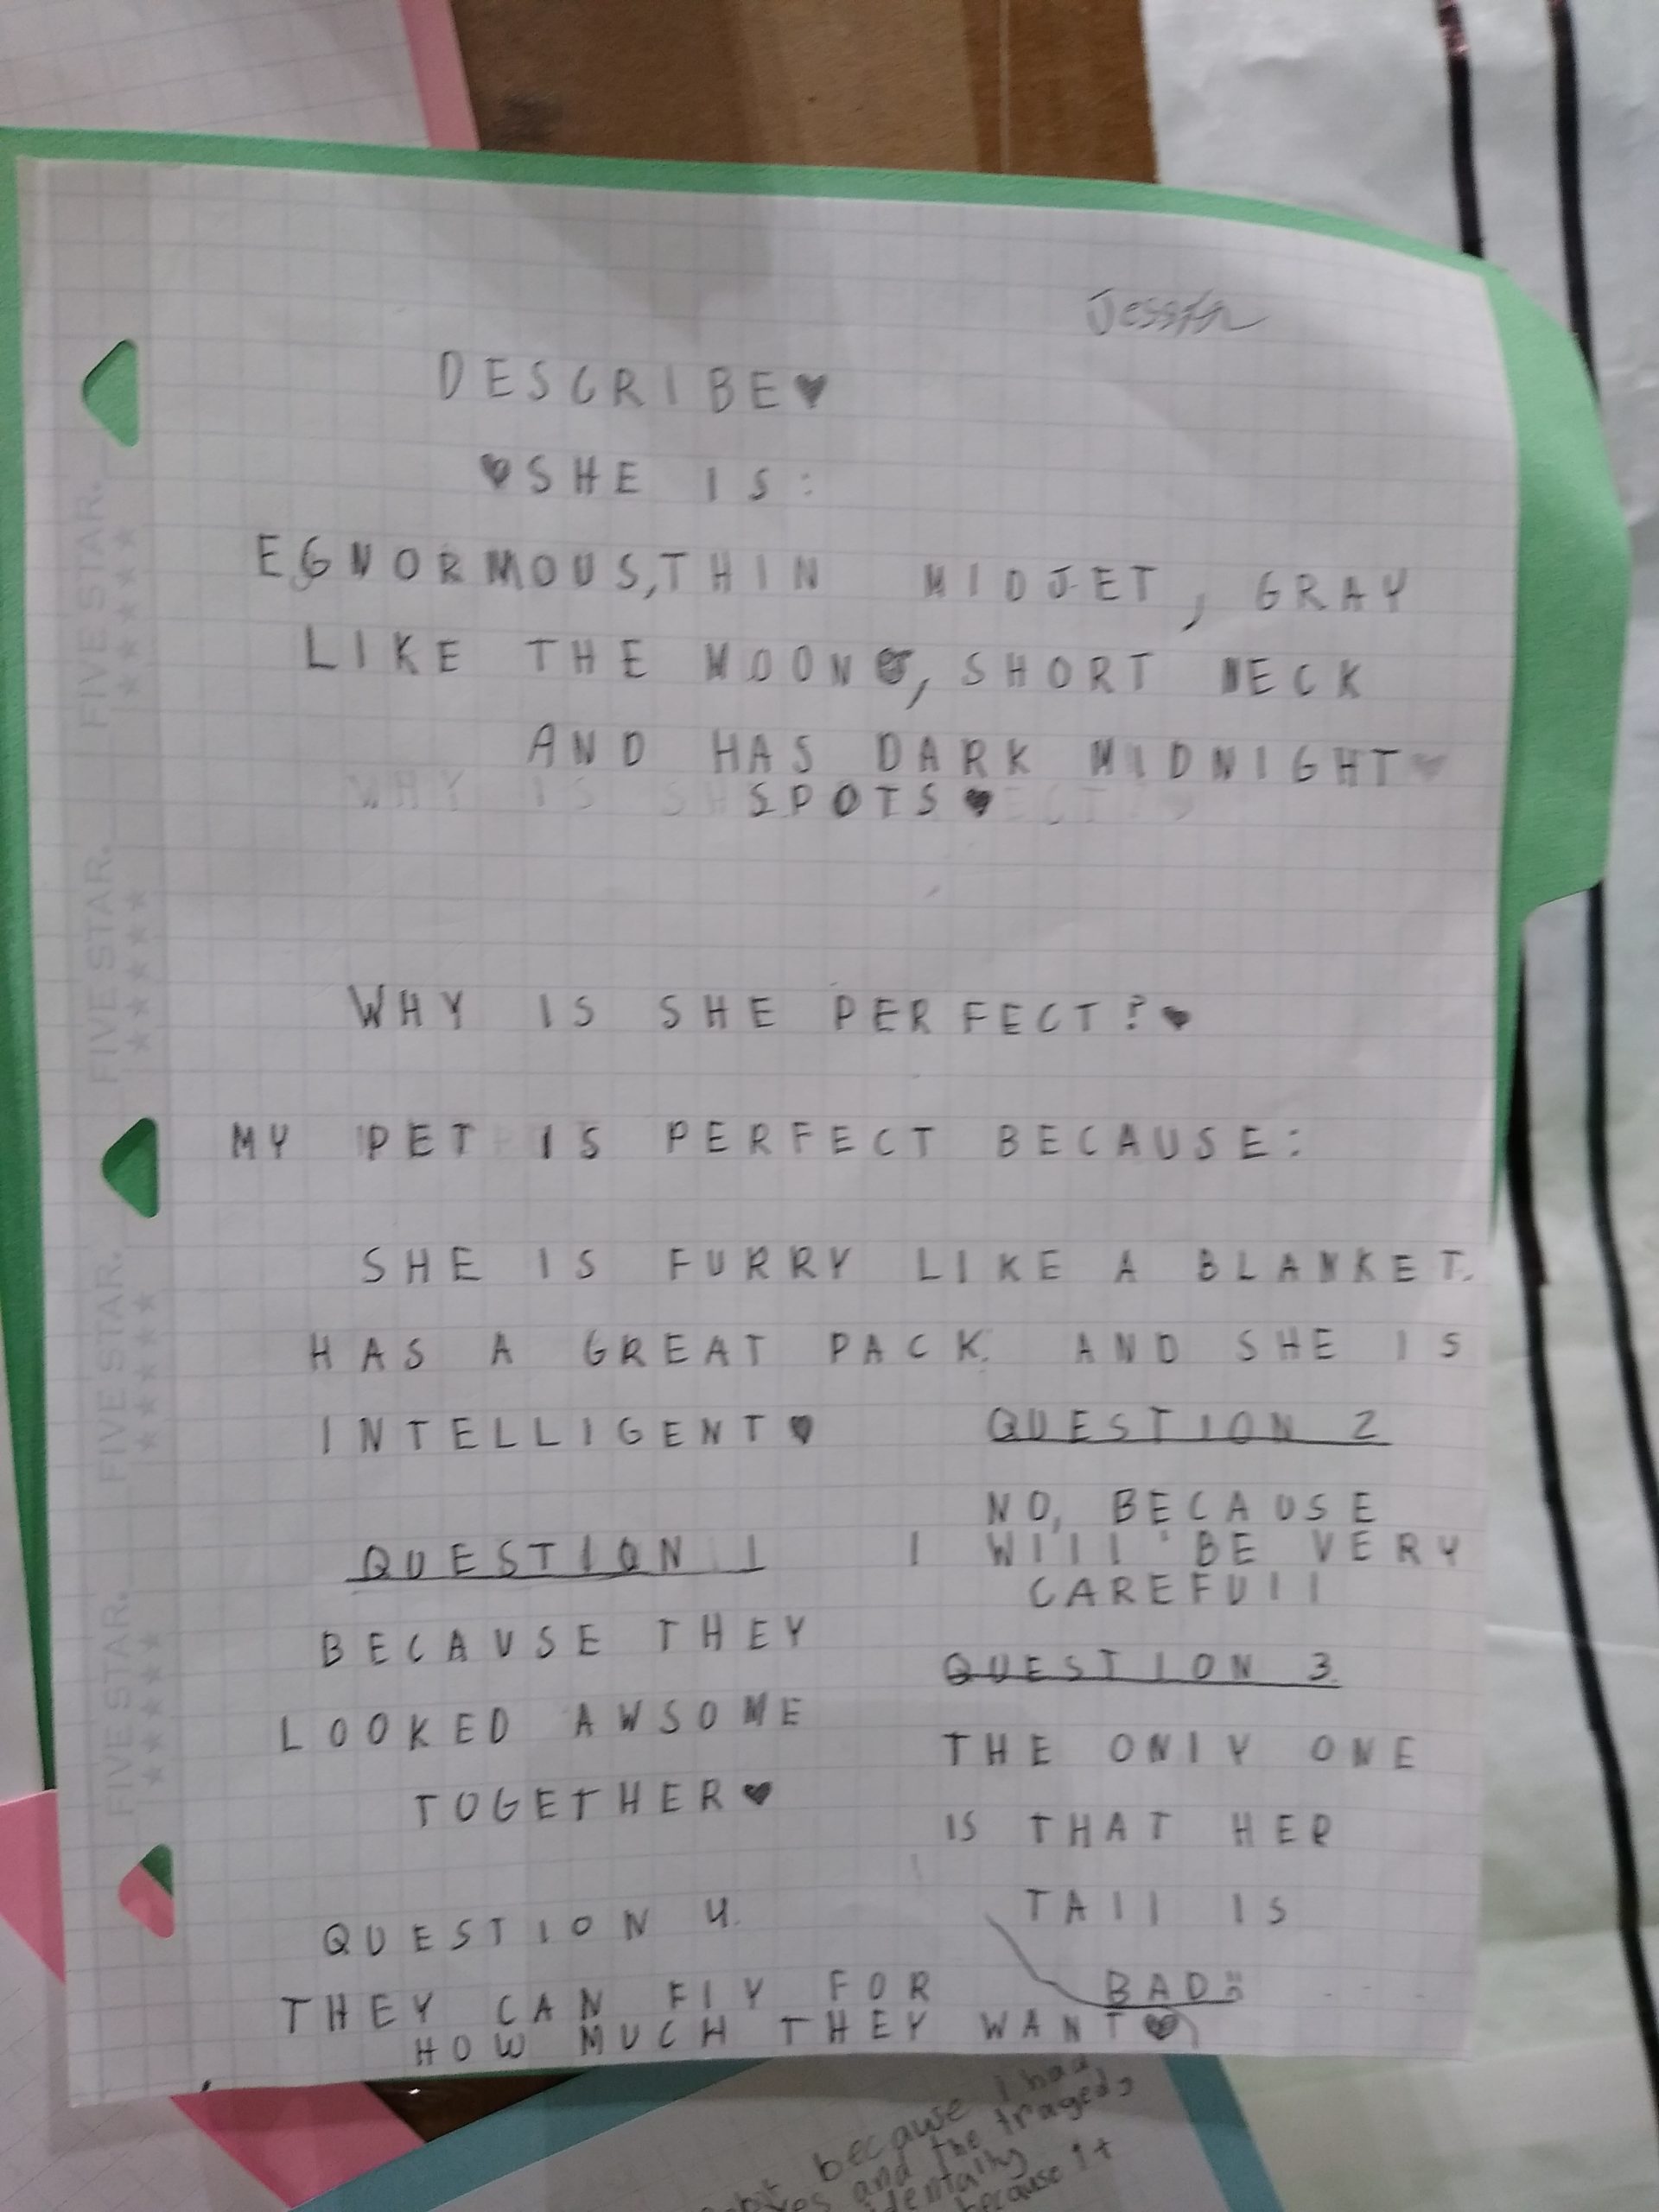 DESCRIBE♥
♥SHE IS:
EGNORMOUS,THIN MIDJET, GRAY
LIKE THE MOON, SHORT NECK
AND HAS DARK MIDNIGHT♥
SPOTS♥
WHY IS SHE PERFECT?♥
MY PET IS PERFECT BECAUSE:
SHE IS FURRY LIKE A BLANKET.
HAS A GREAT PACK. AND SHE IS
INTELLIGENT♥
QUESTION 1
BECAUSE THEY
LOOKED AWSOME
TOGETHER♥
QUESTION 2
NO, BECAUSE
I WIll BE VERY
CAREFUll
QUESTION 3.
THE ONlY ONE
IS THAT HER
TAIl IS
BAD
QUESTION 4.
THEY CAN FlY FOR
HOW MUCH THEY WANT♥
FIVE STAR.
FIVE STAR.
FIVE STAR.
FIVE STAR.
because I had
and the
because it